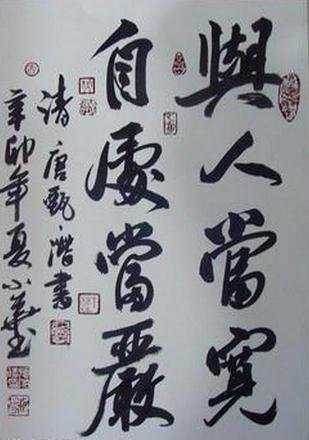 與人當寬
自處當嚴
清唐甄潛書
辛卯年夏小